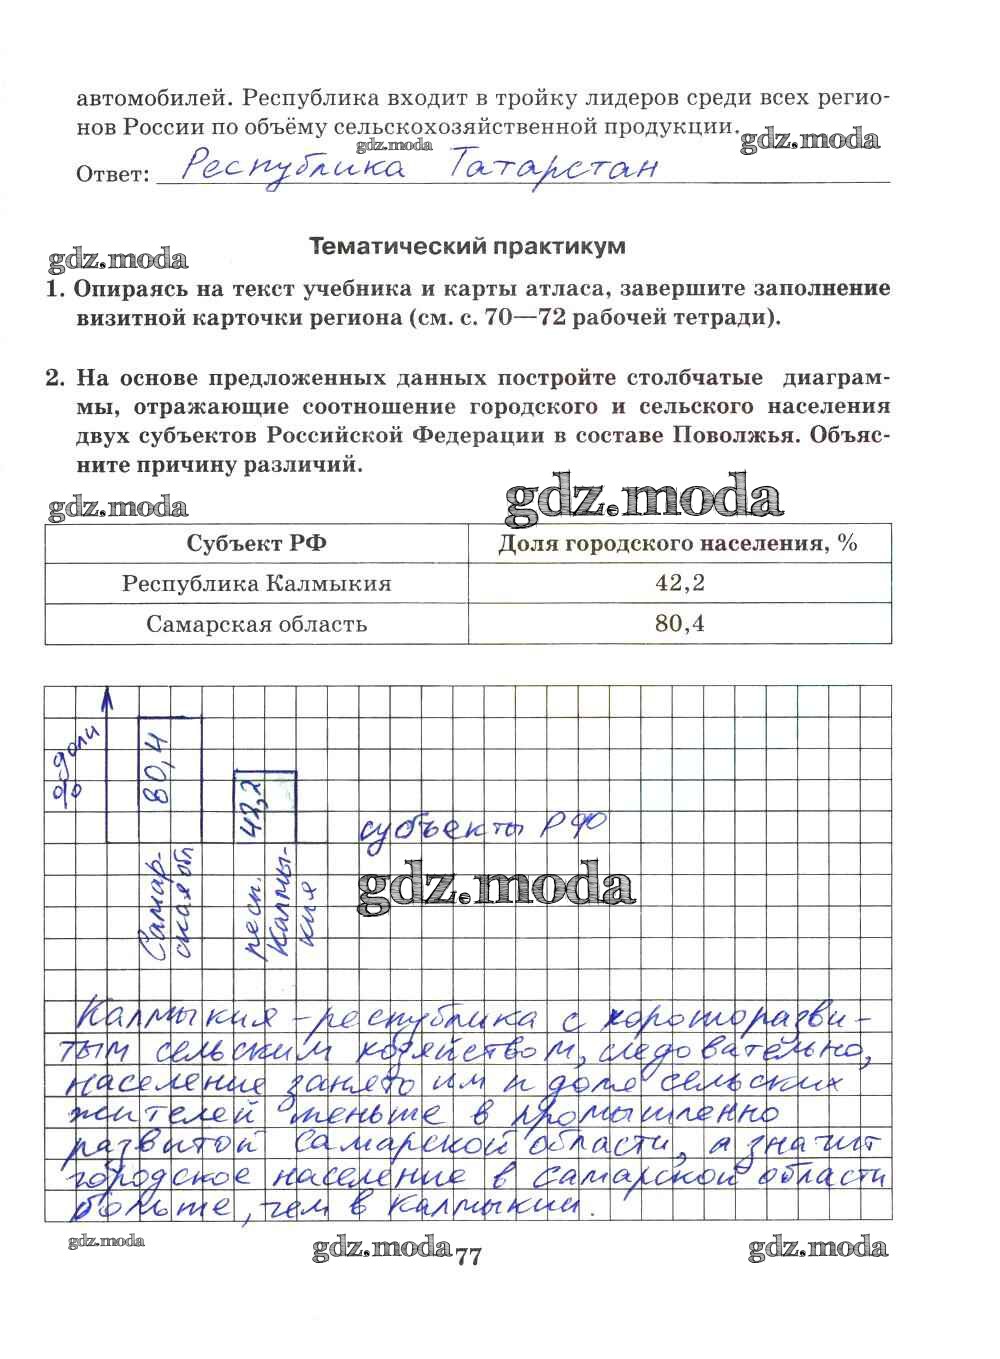 автомобилей. Республика входит в тройку лидеров среди всех регио-
нов России по объёму сельскохозяйственной продукции.
gdz.moda
gdz.moda
Ответ: Республика Татарстан
Тематический практикум
gdz.moda
1. Опираясь на текст учебника и карты атласа, завершите заполнение
визитной карточки региона (см. с. 70—72 рабочей тетради).
2. На основе предложенных данных постройте столбчатые диаграм-
мы, отражающие соотношение городского и сельского населения
двух субъектов Российской Федерации в составе Поволжья. Объяс-
ните причину различий.
gdz.moda
gdz.moda
Субъект РФ Доля городского населения, %
Республика Калмыкия 42,2
Самарская область 80,4
доли
%
80,4
42,2
субъекты РФ
Самар-
ская обл
респ.
Калмы-
кия
gdz.moda
Калмыкия – республика с хорошоразви-
тым сельским хозяйством, следовательно,
население занято им и доля сельских
жителей меньше в промышленно
развитой Самарской области, а значит
городское население в Самарской области
больше, чем в Калмыкии.
gdz.moda
gdz.moda
77
gdz.moda